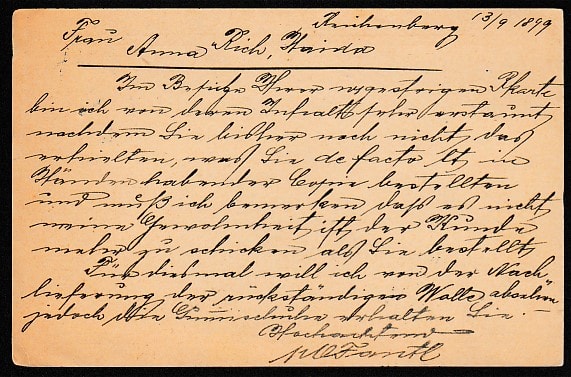 Reichenberg 13/9 1899
Frau
Anna Rich, Haida
Im Besitze Ihrer vgestrigen Pkarte
bin ich von deren Inhalt sehr erstaunt
nachdem Sie bisher noch nicht das
erhielten, was Sie de facto lt in
Händen habender Copie bestellten
und muß ich bemerken daß es nicht
meine Gewohnheit ist der Kunde
mehr zu schicken als Sie bestellt
Für diesmal will ich von der Nach
lieferung der rückständigen Wolle absehen
jedoch die Gummischuhe erhalten Sie.—
Hochachtend
Fantl